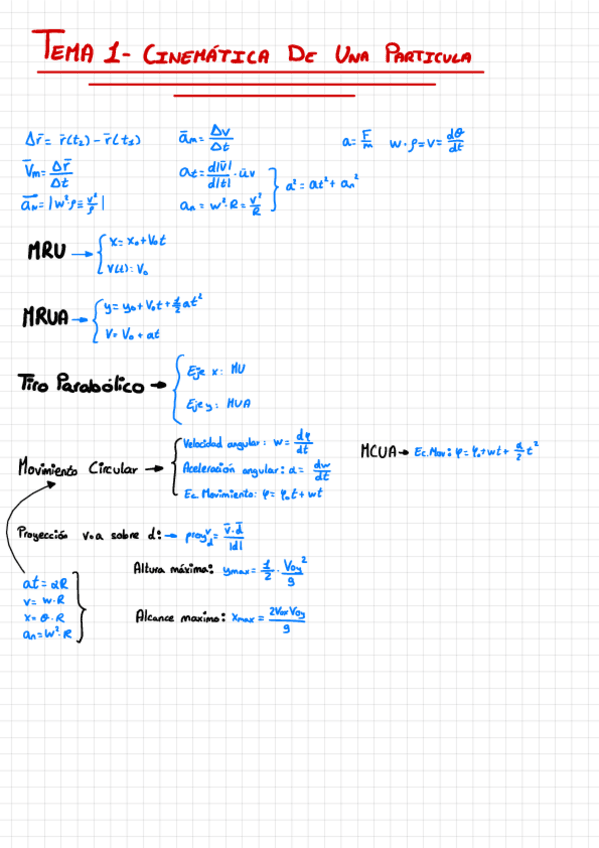 TEMA 1- CINEMÁTICA DE UNA PARTICULA
Δr̄ = r̄(t₂) - r̄(t₁)
āₘ = Δv/Δt
a = F/m w·ρ = v = dθ/dt
V̄ₘ = Δr̄/Δt
at = d|v̄|/d|t| · ūv
a² = at² + aₙ²
āₙ = |w²·ρ = v²/ρ|
aₙ = w²·R = v²/R
MRU → { x = x₀ + V₀t
v(t) = V₀
MRUA → { y = y₀ + V₀t + ½at²
V = V₀ + at
Tiro Parabólico → { Eje x: MU
Eje y: MUA
Movimiento Circular → { Velocidad angular: w = dφ/dt
Aceleración angular: α = dw/dt
Ec. Movimiento: φ = φ₀t + wt
MCUA → Ec. Mov: φ = φ₀ + wt + α/2 t²
Proyección v.a sobre d: → proy_d^v = v̄·d̄/|d|
Altura máxima: yₘₐₓ = 1/2 · V₀y²/g
Alcance maximo: xₘₐₓ = 2V₀ₓV₀y/g
at = αR
v = w·R
x = θ·R
aₙ = W²·R